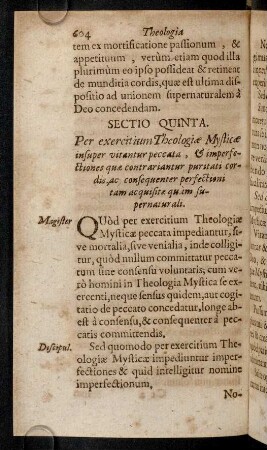 604 Theologia
tem ex mortificatione passionum, &
appetituum, verùm etiam quod illa
plurimùm eo ipso possideat & retineat
de munditia cordis, quæ est ultima dis-
positio ad unionem supernaturalem à
Deo concedendam.
SECTIO QUINTA.
Per exercitium Theologiæ Mysticæ
insuper vitantur peccata, & imperfe-
ctiones quæ contrariantur puritati cor-
dis, ac consequenter perfectioni
tam acquisitæ quàm su-
pernaturali.
Magister QUòd per exercitium Theologiæ
Mysticæ peccata impediantur, si-
ve mortalia, sive venialia, inde colligi-
tur, quòd nullum committatur pecca-
tum sine consensu voluntatis; cum ve-
rò homini in Theologia Mystica se ex-
ercenti, neque sensus quidem, aut cogi-
tatio de peccato concedatur, longe ab-
est à consensu, & consequenter à pec-
catis committendis.
Discipul. Sed quomodo per exercitium The-
ologiæ Mysticæ impediuntur imper-
fectiones & quid intelligitur nomine
imperfectionum,
No-